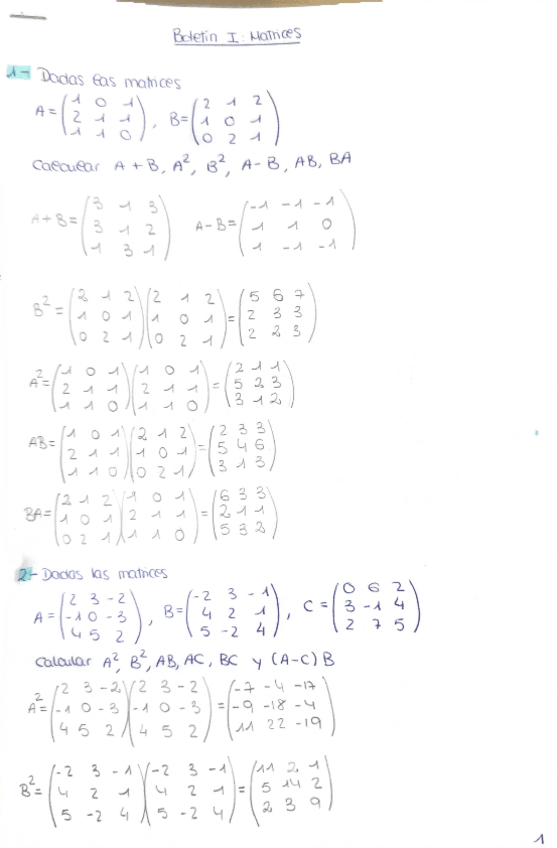 Boletín I: Matrices
1- Dadas las matrices
A = (1 0 1; 2 1 1; 1 1 0), B = (2 1 2; 1 0 1; 0 2 1)
Calcular A + B, A², B², A - B, AB, BA
A + B = (3 1 3; 3 1 2; 1 3 1) A - B = (-1 -1 -1; 1 1 0; 1 -1 -1)
B² = (2 1 2; 1 0 1; 0 2 1)(2 1 2; 1 0 1; 0 2 1) = (5 6 7; 2 3 3; 2 2 3)
A² = (1 0 1; 2 1 1; 1 1 0)(1 0 1; 2 1 1; 1 1 0) = (2 1 1; 5 2 3; 3 1 2)
AB = (1 0 1; 2 1 1; 1 1 0)(2 1 2; 1 0 1; 0 2 1) = (2 3 3; 5 4 6; 3 1 3)
BA = (2 1 2; 1 0 1; 0 2 1)(1 0 1; 2 1 1; 1 1 0) = (6 3 3; 2 1 1; 5 3 2)
2- Dadas las matrices
A = (2 3 -2; -1 0 -3; 4 5 2), B = (-2 3 -1; 4 2 1; 5 -2 4), C = (0 6 2; 3 -1 4; 2 7 5)
Calcular A², B², AB, AC, BC y (A-C) B
A² = (2 3 -2; -1 0 -3; 4 5 2)(2 3 -2; -1 0 -3; 4 5 2) = (-7 -4 -17; -9 -18 -4; 11 22 -19)
B² = (-2 3 -1; 4 2 1; 5 -2 4)(-2 3 -1; 4 2 1; 5 -2 4) = (11 2 1; 5 14 2; 2 3 9)
1